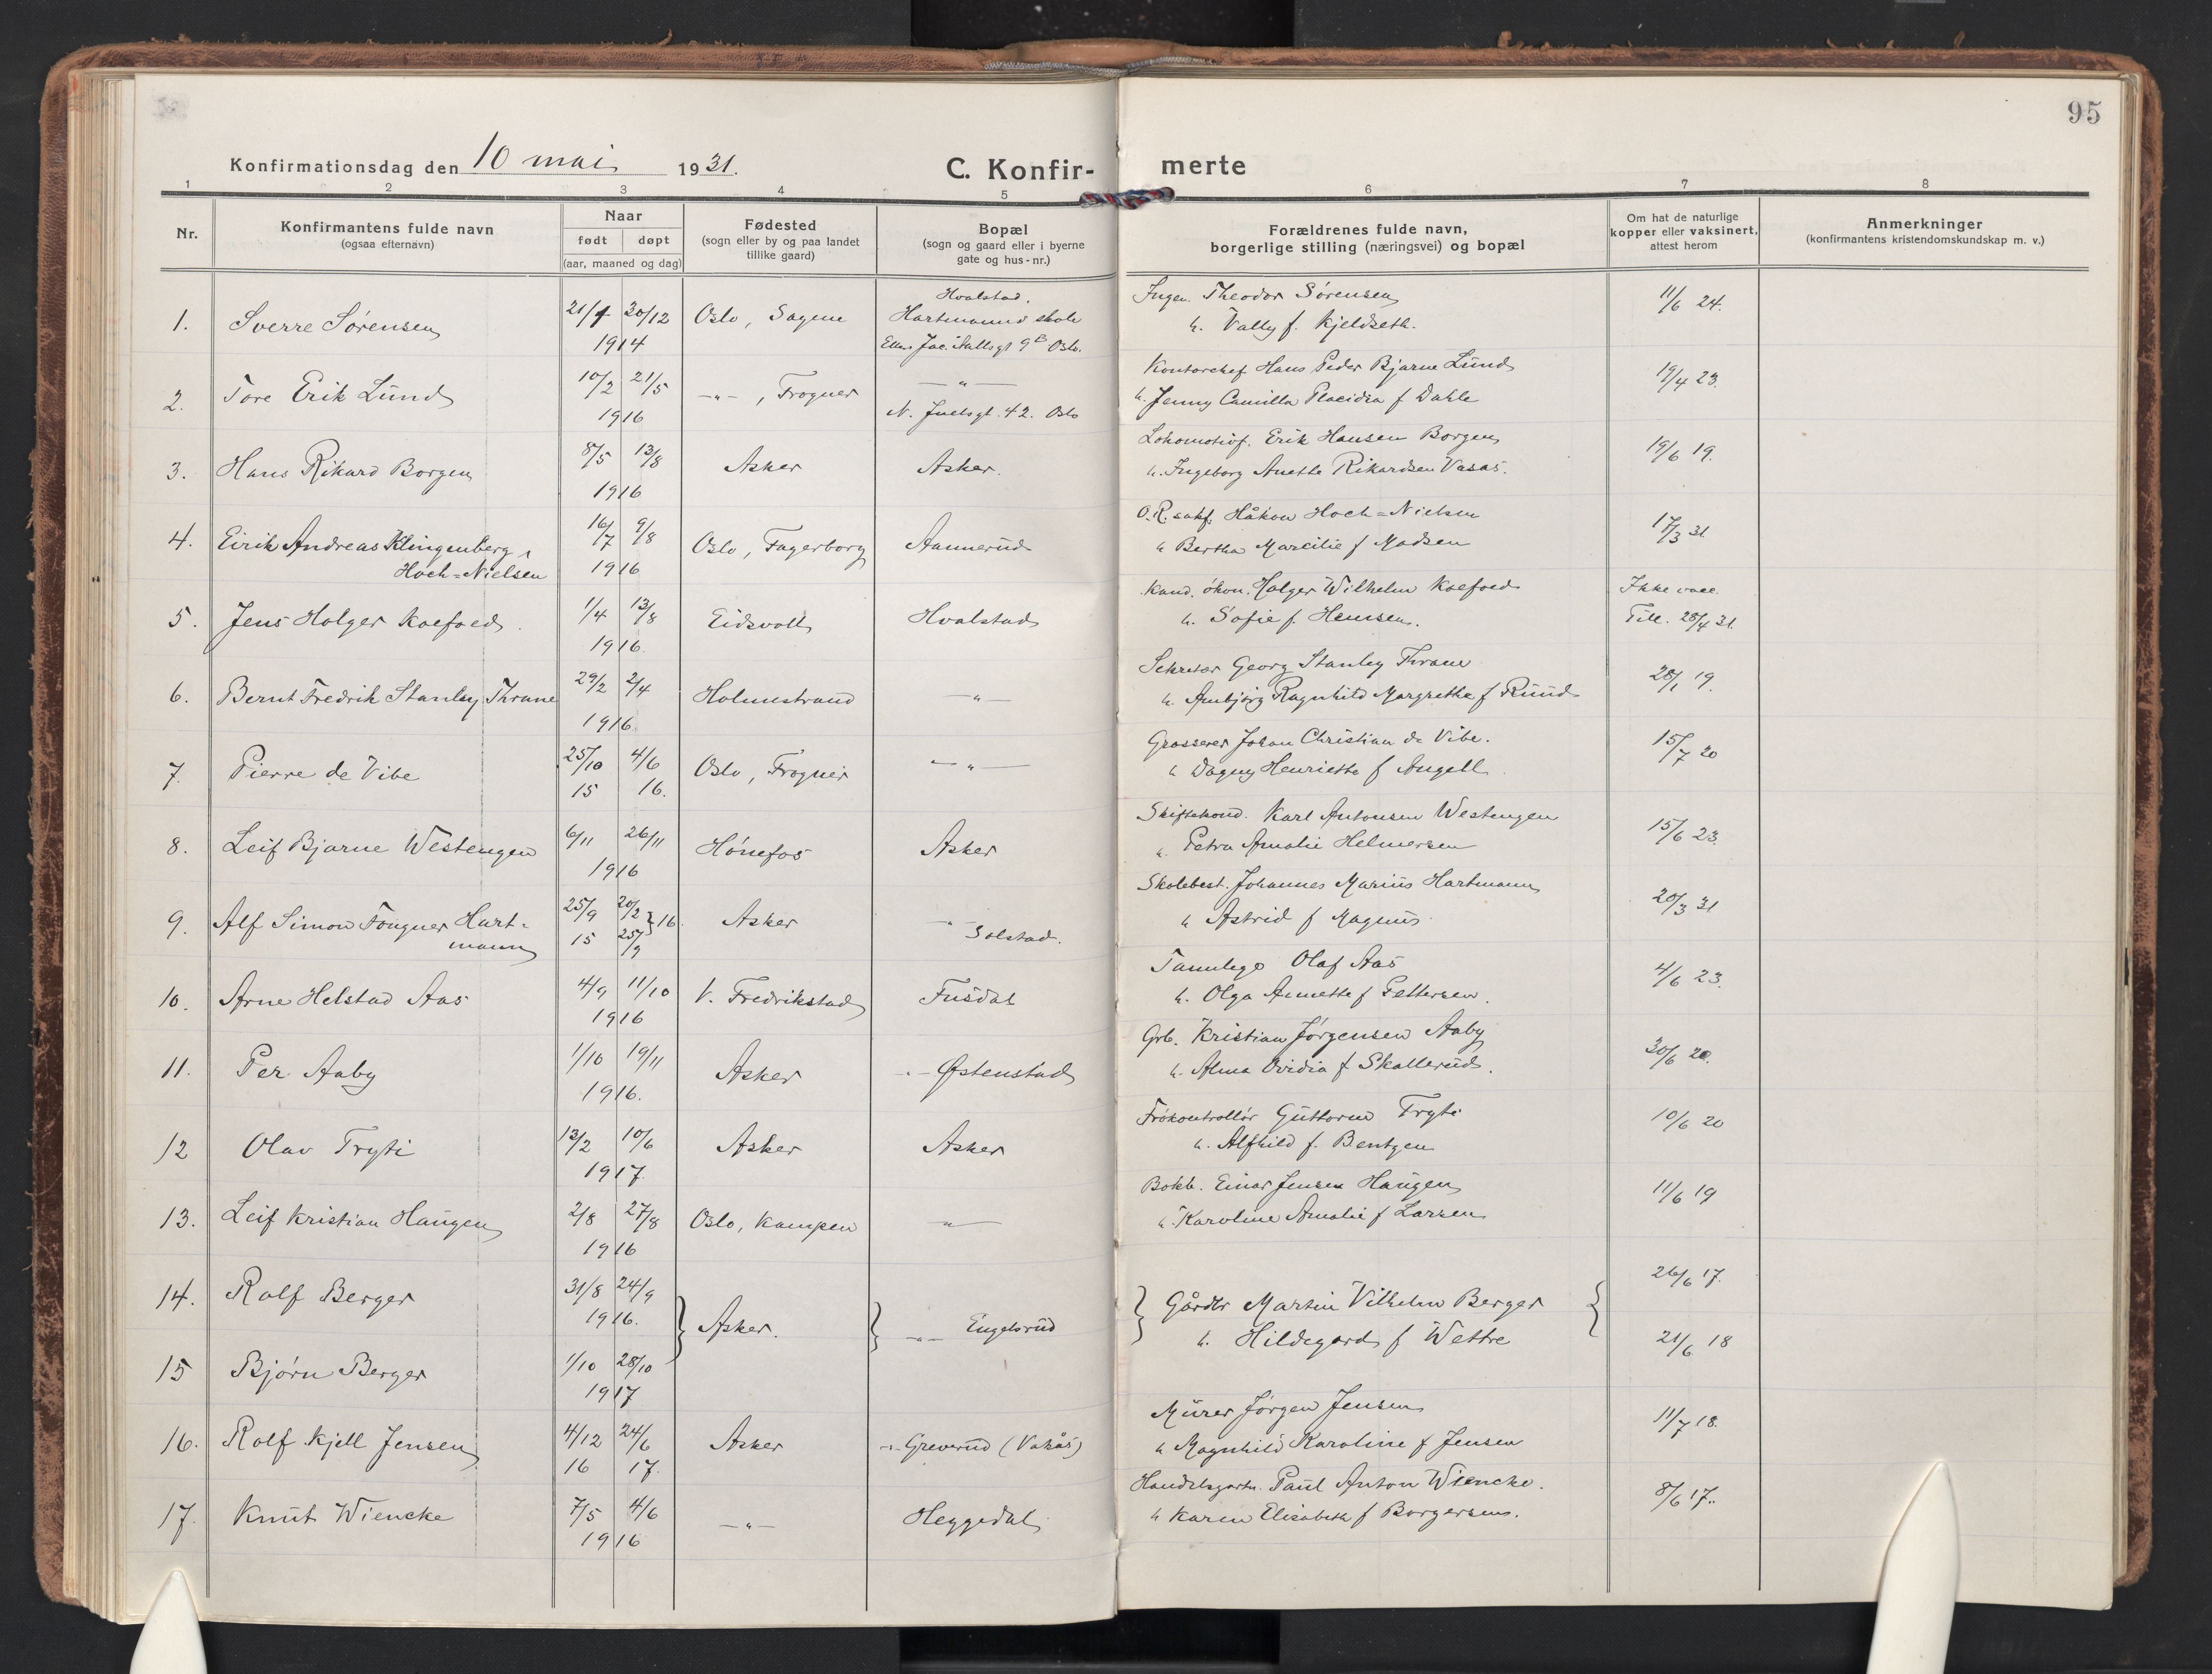 95
Konfirmationsdag den 10 mai 1931.
C. Konfir- merte
1 2 3 4 5 6 7 8
Nr.
Konfirmantens fulde navn
(ogsaa efternavn)
Naar
født døpt
(aar, maaned og dag)
Fødested
(sogn eller by og paa landet
tillike gaard)
Bopæl
(sogn og gaard eller i byerne
gate og hus-nr.)
Forældrenes fulde navn,
borgerlige stilling (næringsvei) og bopæl
Om hat de naturlige
kopper eller vaksinert,
attest herom
Anmerkninger
(konfirmantens kristendomskundskap m. v.)
Hvalstad.
1. Sverre Sørensen 21/7 20/12 Oslo, Sagene Hartmanns skole Ingen. Theodor Sørensen 11/6 24.
1914 Jac. Aallsgt 9B Oslo. h. Vally f. Kjeldseth.
2. Tore Erik Lund 10/2 21/5 -"-, Frogner -"- Kontorchef Hans Peder Bjarne Lund 19/4 23.
1916 N. Juelsgt. 42. Oslo h. Jenny Camilla Placidia f Dahle
3. Hans Rikard Borgen 8/5 13/8 Asker Asker. Lokomotivf. Erik Hansen Borgen 19/6 19.
1916 h. Ingeborg Anette Rikardsen Vasås.
4. Eirik Andreas Klingenberg 16/7 9/8 Oslo, Fagerborg Aannerud O.R. sakf. Håkon Hoch=Nielsen 17/3 31
Hoch=Nielsen 1916 h Bertha Marcilie f Madsen
5. Jens Holger Koefoed. 1/4 13/8 Eidsvoll Hvalstad Kand. økon. Holger Wilhelm Koefoed Ikke vacc.
1916. h. Sofie f. Hemsen. Till. 28/4 31.
6. Bernt Fredrik Stanley Thrane 29/2 2/4 Holmestrand -"- Sekretær Georg Stanley Thrane 28/1 19.
1916. h. Ambjørg Ragnhild Margrethe f Ruud
7. Pierre de Vibe 25/10 4/6 Oslo, Frogner -"- Grosserer Johan Christian de Vibe. 15/7 20
15 16. h Dagny Henriette f Angell
8. Leif Bjarne Westengen 6/11 26/11 Hønefos Asker Skiftekond. Karl Antonsen Westengen 15/6 23.
1916 h. Petra Amalie Helmersen
9. Alf Simon Fougner Hart- 25/9 20/2 }16. Asker -"- Solstad. Skolebest. Johannes Marius Hartmann 20/3 31
mann 15 25/9 h Astrid f Magnus
10. Arne Helstad Aas 4/9 11/10 V. Fredrikstad Fusdal Tannlege Olaf Aas 4/6 23.
1916 h. Olga Annette f Pettersen.
11. Per Aaby 1/10 19/11 Asker -"- Østenstad Grb. Kristian Jørgensen Aaby 30/6 20.
1916. h. Alma Ovidia f Skallerud.
12 Olav Tryti 13/2 10/6 Asker Asker Frøkontrollør Guttorm Tryti 10/6 20
1917. h. Alfhild f. Bentzen
13. Leif Kristian Haugen 2/8 27/8 Oslo, Kampen -"- Bokb. Einar Jensen Haugen 11/6 19
1916 h. Karoline Amalie f Larsen
14. Rolf Berger 31/8 24/9 } Asker. } -"- Engelsrud } Gårdbr Martin Vilhelm Berger { 26/6 17.
1916. h. Hildegard f Wettre
15 Bjørn Berger 1/10 28/10 21/6 18
1917
16. Rolf Kjell Jensen 4/12 24/6 Asker -"- Greverud (Vakås) Murer Jørgen Jensen 11/7 18.
16 17. h Magnhild Karoline f Jensen
17. Knut Wiencke 7/5 4/6 -"- Heggedal Handelsgartn. Paul Anton Wiencke. 8/6 17.
1916 h Karen Elisabeth f Borgersen.